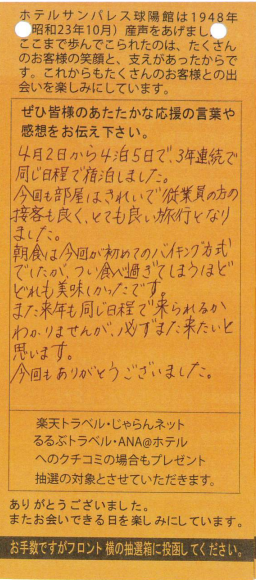 ホテルサンパレス球陽館は1948年
昭和23年10月）産声をあげまし
ここまで歩んでこられたのは、たくさん
のお客様の笑顔と、支えがあったからで
す。これからもたくさんのお客様との出
会いを楽しみにしています。
ぜひ皆様のあたたかな応援の言葉や
感想をお伝え下さい。
4月2日から4泊5日で、3年連続で
同じ日程で宿泊しました。
今回も部屋はきれいで従業員の方の
接客も良く、とても良い旅行となり
ました。
朝食は今回が初めてのバイキング方式
でしたが、つい食べ過ぎてしまうほど
どれも美味しかったです。
また来年も同じ日程で来られるか
わかりませんが、必ずまた来たいと
思います。
今回もありがとうございました。
楽天トラベル・じゃらんネット
るるぶトラベル・ANA@ホテル
へのクチコミの場合もプレゼント
抽選の対象とさせていただきます。
ありがとうございました。
またお会いできる日を楽しみにしています。
お手数ですがフロント横の抽選箱に投函してください。